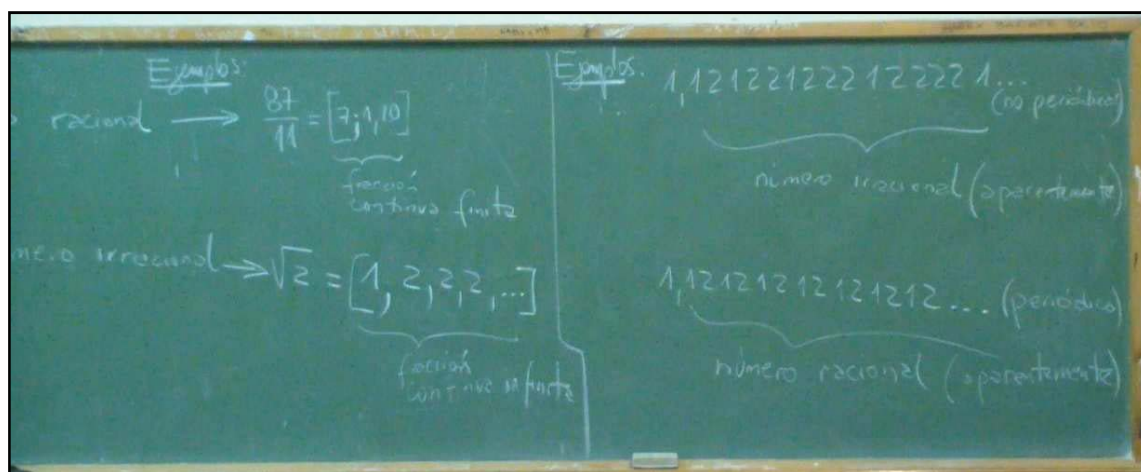 Ejemplos:
racional → 87/11 = [7;1,10]
fracción
continua finita
mero irracional → √2 = [1, 2, 2, 2, ...]
fracción
continua infinita
Ejemplos.
1,12122122212222 1...
(no periódico)
número irracional (aparentemente)
1,12121212121212.... (periódico)
número racional (aparentemente)